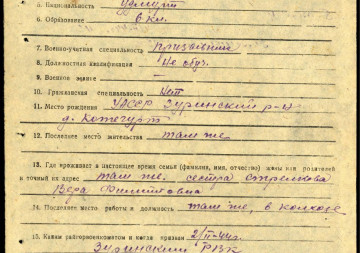 5. Национальность удмурт
6. Образование 6 кл.
7. Военно-учетная специальность призывник
8. Должностная квалификация Не обуч.
9. Военное звание
10. Гражданская специальность Нет
11. Место рождения УАССР Зуринский р-н
д. Кожегурт
12. Последнее место жительства там же
13. Где проживает в настоящее время семья (фамилия, имя, отчество) жены или родителей
и точный их адрес там же. сестра Стрелкова
Вера Филипповна
14. Последнее место работы и должность там же, в колхозе
15. Каким райгорвоенкоматом и когда призван 2/II-44 г.
Зуринский РВК